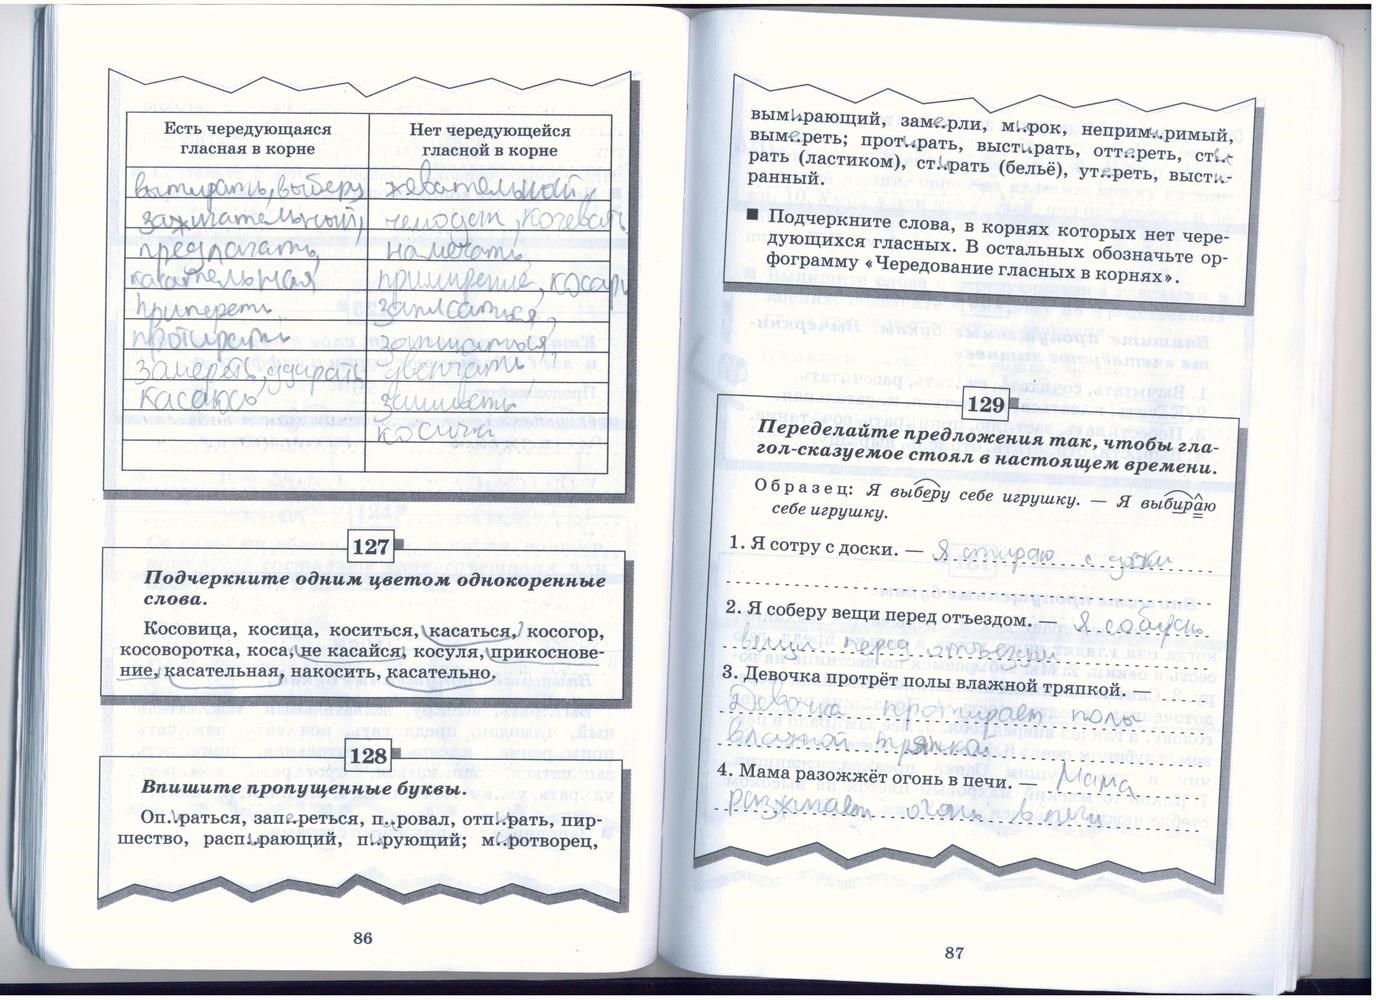 Есть чередующаяся
гласная в корне
Нет чередующейся
гласной в корне
вытирать, выберу жевательный,
зажигательный, чемодан, кочевать
предлагать, намечать,
касательная примирение,
притереть
протирать
замереть, удирать
касаюсь
127
Подчеркните одним цветом однокоренные
слова.
Косовица, косица, коситься, касаться, косогор,
косоворотка, коса, не касайся, косуля, прикоснове-
ние, касательная, накосить, касательно.
128
Впишите пропущенные буквы.
Опираться, запереться, пировал, отпирать, пир-
шество, распирающий, пирующий; миротворец,
86
вымирающий, замерли, мирок, непримиримый,
вымереть; протирать, выстирать, оттереть, сти-
рать (ластиком), стирать (бельё), утереть, высти-
ранный.
■ Подчеркните слова, в корнях которых нет чере-
дующихся гласных. В остальных обозначьте ор-
фограмму «Чередование гласных в корнях».
129
Переделайте предложения так, чтобы гла-
гол-сказуемое стоял в настоящем времени.
Образец: Я выберу себе игрушку. — Я выбираю
себе игрушку.
1. Я сотру с доски. — Я стираю с доски
2. Я соберу вещи перед отъездом. — Я собираю
вещи перед отъездом
3. Девочка протрёт полы влажной тряпкой. —
Девочка протирает полы
влажной тряпкой
4. Мама разожжёт огонь в печи. Мама
разжигает огонь в печи
87